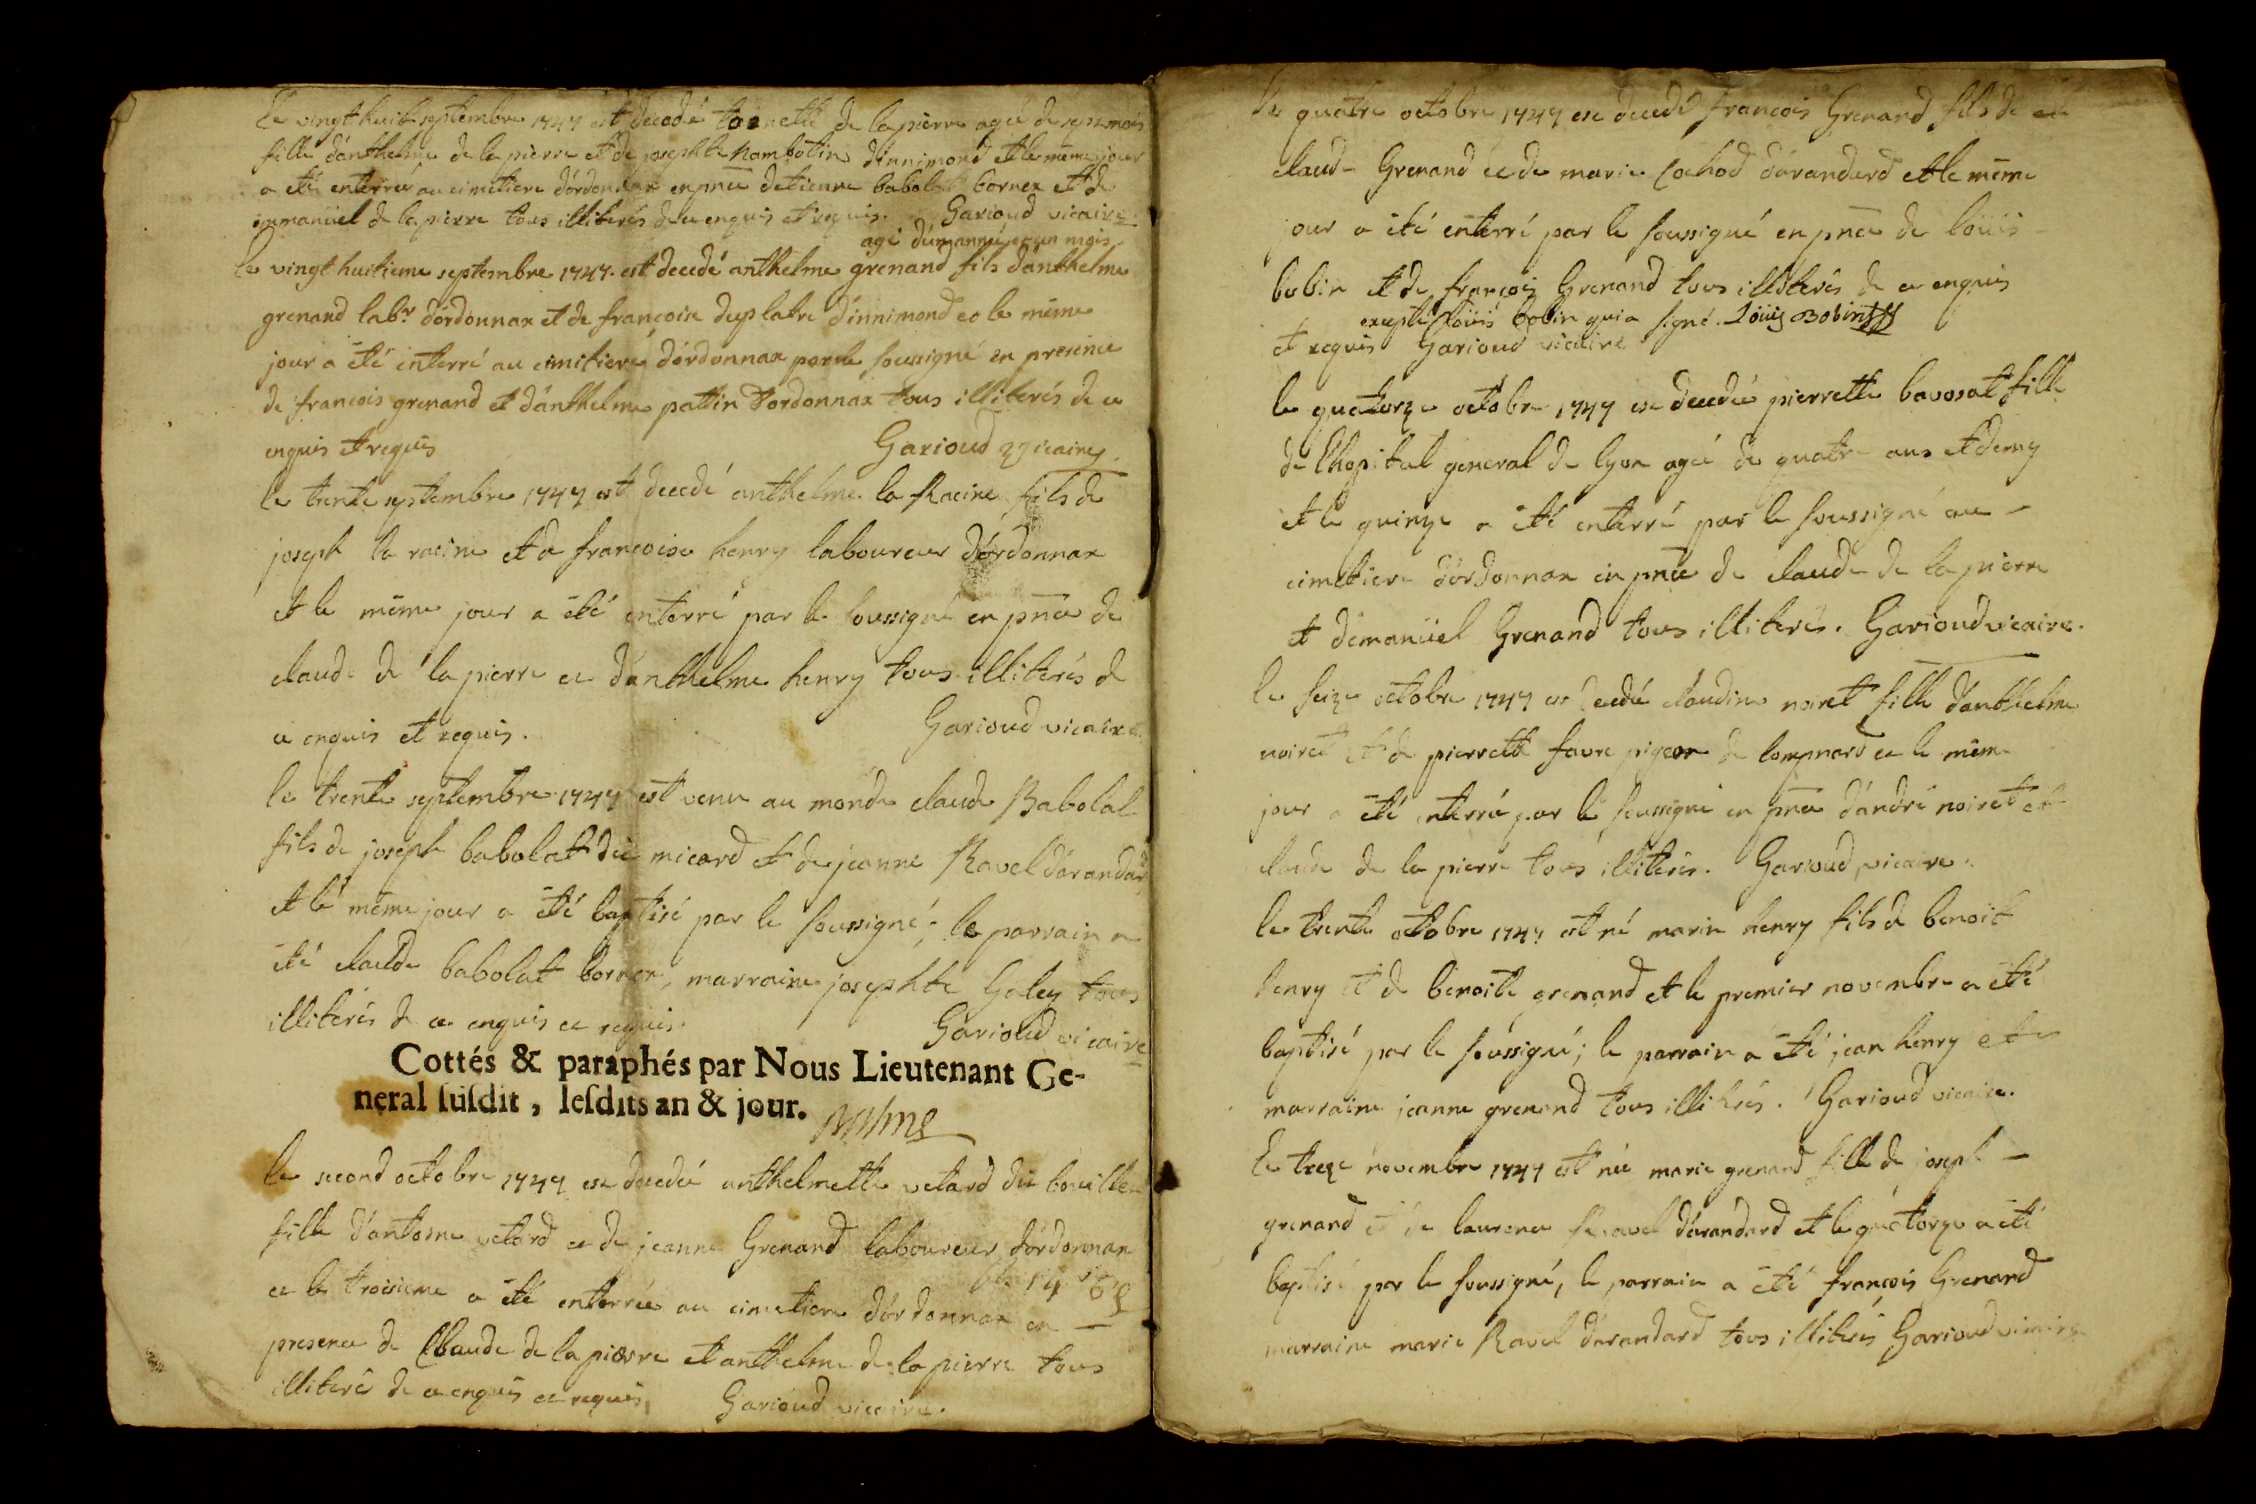 Le vingt huit septembre 1747 est decedé toinette de la pierre agée de sept mois
fille d'anthelme de la pierre et de josephte nambotin d'innimond et le même jour
a été enterrée au cimetiere d'ordonnax en pnce d'etienne babolat borner et de
emmanüel de la pierre tous illiterés de ce enquis et requis. Garioud vicaire.
agé d'un année et un mois
le vingt huitieme septembre 1747. est decedé anthelme grenand fils d'anthelme
grenand labr d'ordonnax et de françoise duplatre d'innimond et le même
jour a été enterré au cimitiere d'ordonnax par le soussigné en presence
de francois grenand et d'anthelme pattin d'ordonnax tous illiterés de ce
enquis et requis Garioud vicaire.
le trente septembre 1747 est decedé anthelme la Racine fils de
joseph la racine et de françoise henry laboureur d'ordonnax
et le même jour a été enterré par le soussigné en pnce de
claude de la pierre et d'anthelme henry tous illiterés de
ce enquis et requis. Garioud vicaire.
le trente septembre 1747 est venu au monde claude Babolat
fils de joseph babolat dit micard et de jeanne Ravel d'arandard
et le même jour a été baptisé par le soussigné; le parrain a
été claude babolat borner, marraine josephte Goley tous
illiterés de ce enquis et requis. Garioud vicaire
Cottés & paraphés par Nous Lieutenant Ge-
neral susdit, lesdits an & jour.
le second octobre 1747 est decedée anthelmette vetard dit bouillet
fille d'antoine vetard et de jeanne Grenand laboureur d'ordonnax
et le troisieme a été enterrée au cimetiere d'ordonnax en
presence de Claude de la pierre et anthelme de la pierre tous
illiteré de ce enquis et requis Garioud vicaire.
le quatre octobre 1747 est decedé francois Grenand fils de
claude Grenand et de marie Cochod d'arandard et le même
jour a été enterré par le soussigné en pnce de loüis
bobin et de françois Grenand tous illiterés de ce enquis
excepté loüis bobin qui a signé. loüis Bobin
et requis Garioud vicaire
le quatorze octobre 1747 est decedée pierrette bavosat fille
de l'hopital general de lyon agée de quatre ans et demy
et le quinze a été enterré par le soussigné au
cimetiere d'ordonnax en pnce de claude de la pierre
et d'emanüel Grenand tous illiterés. Garioud vicaire.
le seize octobre 1747 est decedée claudine noiret fille d'anthelme
noiret et de pierrette favre pigeon de lompnard et le même
jour a été enterrée par le soussigné en pnce d'andré noiret et
claude de la pierre tous illiterés. Garioud vicaire.
le trente octobre 1747 est né marin henry fils de benoit
henry et de benoite grenand et le premier novembre a été
baptisé par le soussigné; le parrain a été jean henry et
marraine jeanne grenand tous illiterés. Garioud vicaire.
le treze novembre 1747 est née marie grenand fille de joseph
grenand et de laurence Ravel d'arandard et le quatorze a été
baptisé par le soussigné, le parrain a été françois Grenand
marraine marie Ravel d'arandard tous illiterés Garioud vicaire